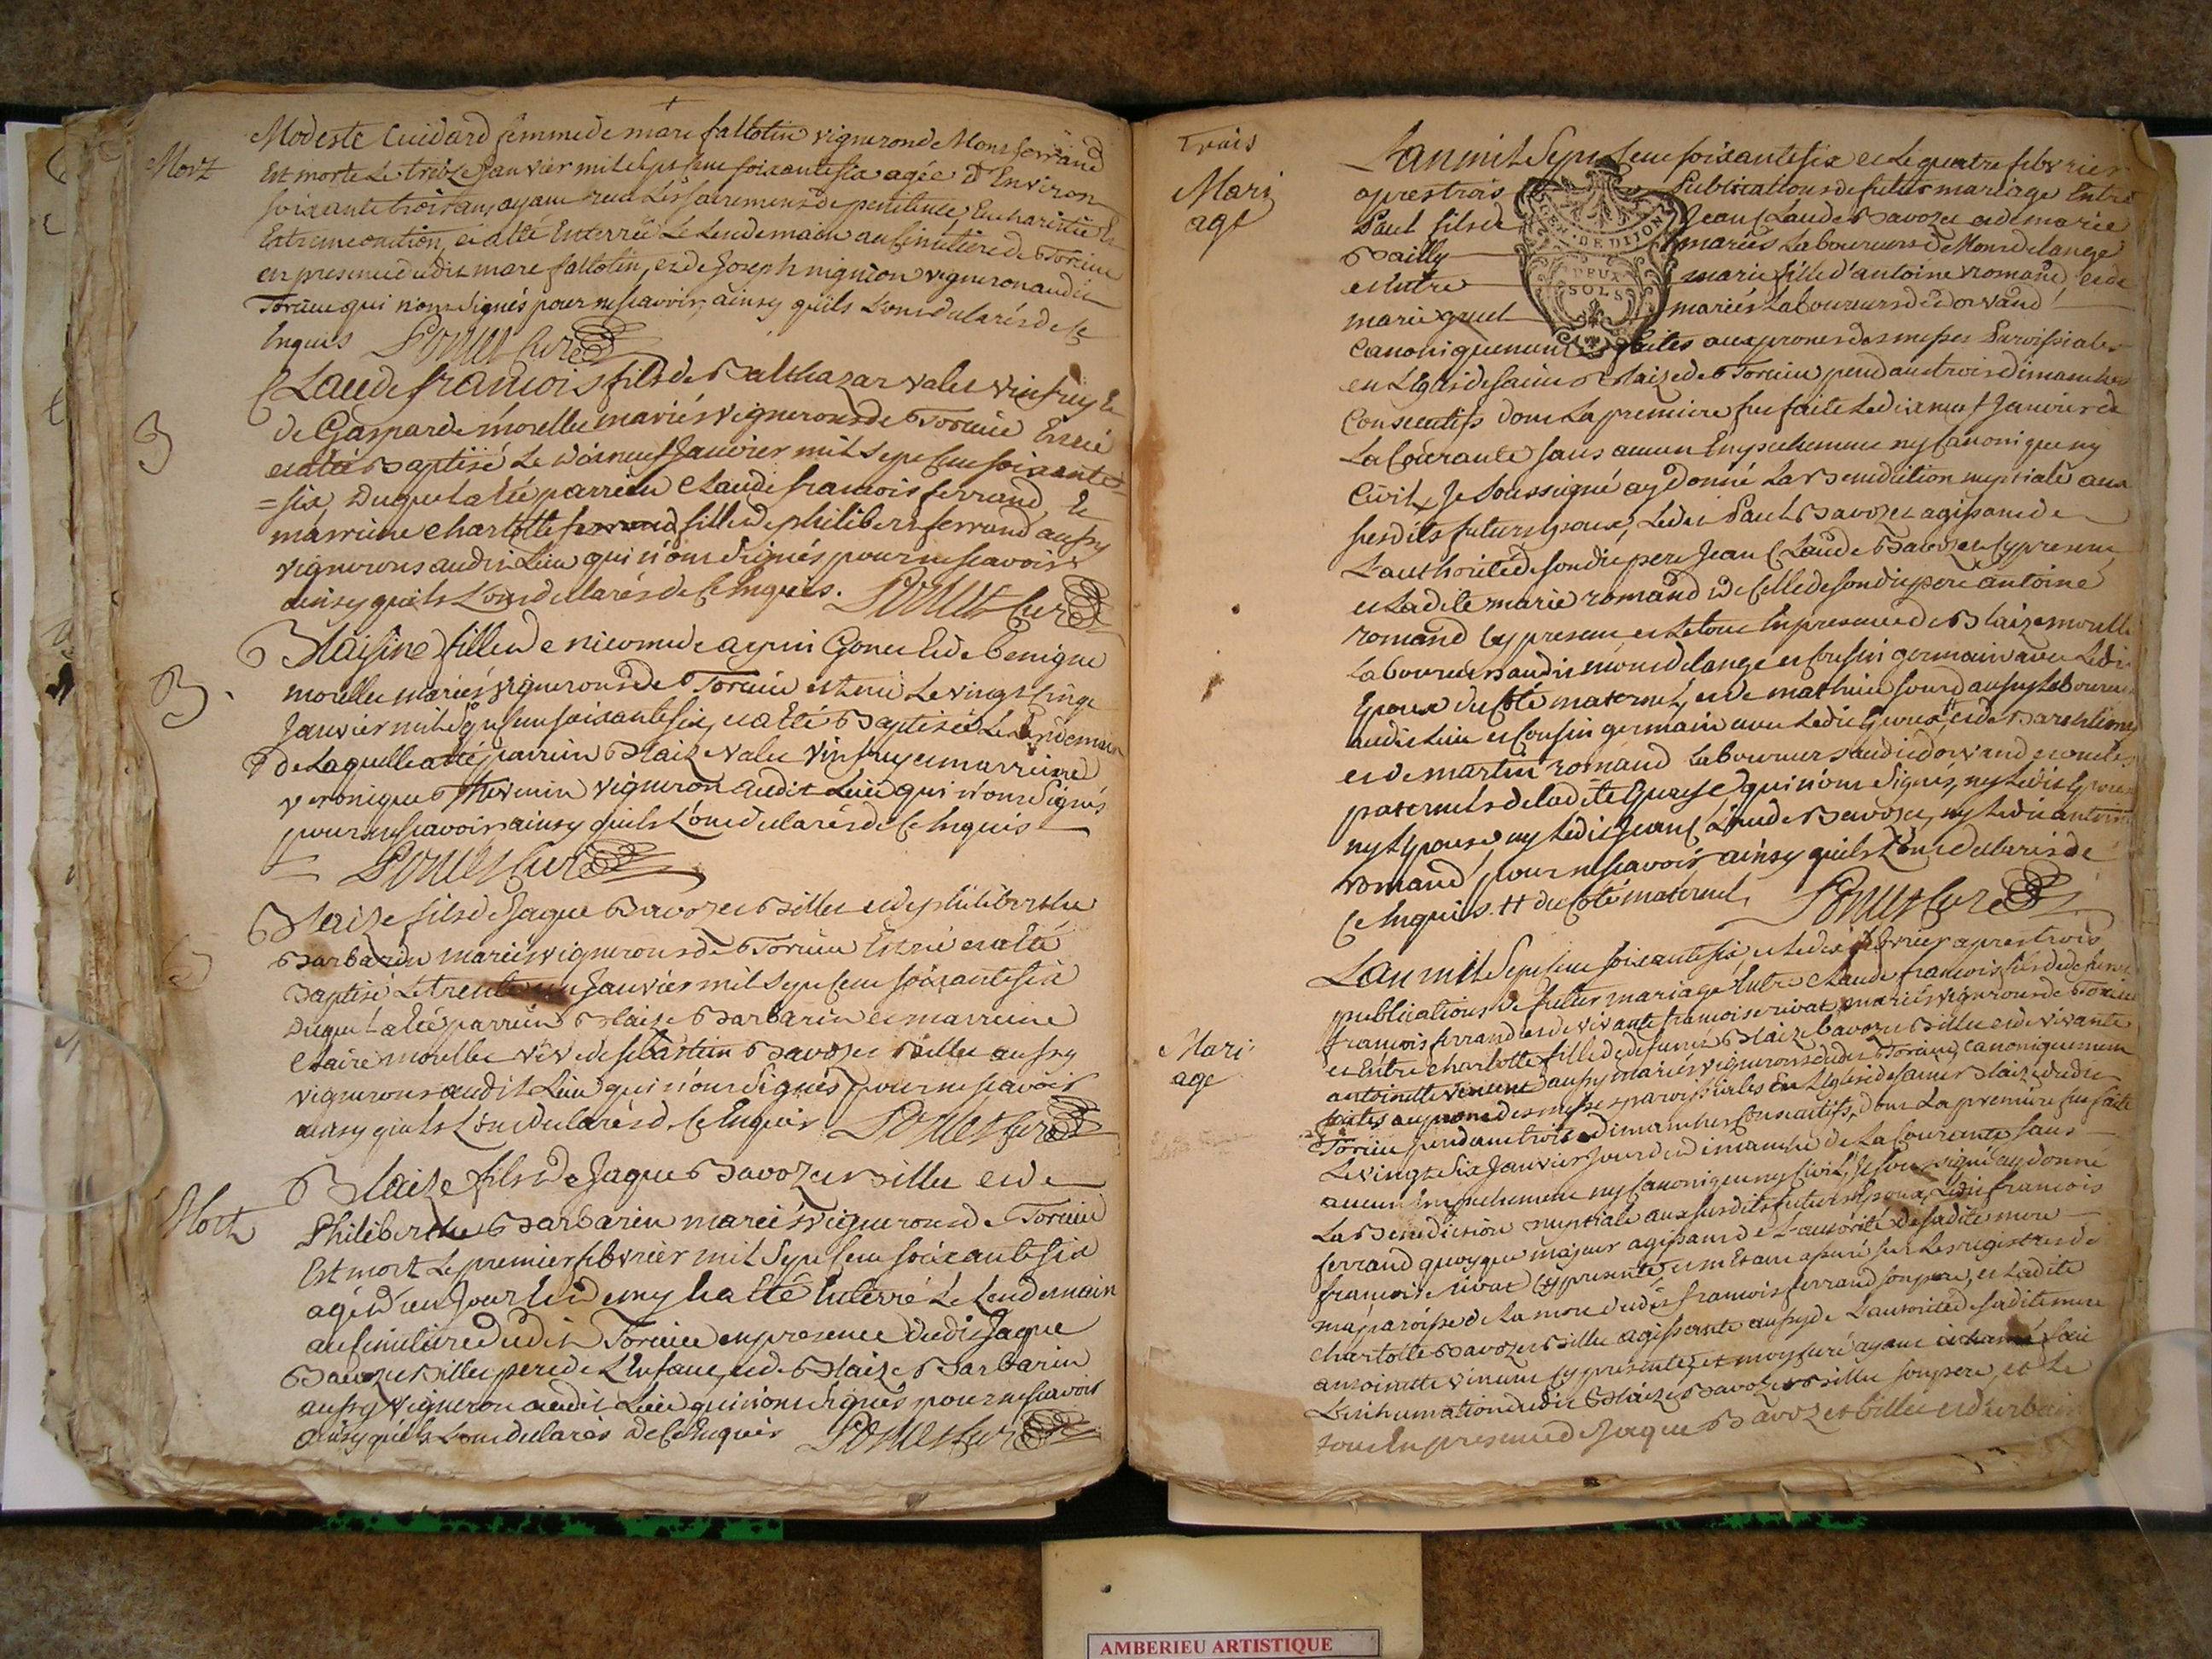 Modeste Cuidard femme de marc fallotin vigneron de Montferrand
Mort
Est morte Le treize Janvier mil sept cent soixante six agée d'Environ
soixante trois ans ayant reçu Les sacremens de penitence, Eucharistie Et
Extremeonction, et a Eté Enterrée Le Lendemain au Cimetiere de Torcieu
en presence dudit marc fallotin, et de Joseph vigneron audit
Torcieu qui n'ont signés pour ne scavoir, ainsy qu'ils L'ont declarés de ce
Enquis Curé
B
Claude francois fils de Balthazar valet vinfrey Et
de Gasparde morellet mariés vignerons de Torcieu Est né
et a Eté Baptisé Le dix neuf Janvier mil sept cent soixante
= six, Duquel a Eté parrein Claude francois ferrand, Et
marreine Charlotte fille de philibert ferrand aussy
vignerons audit Lieu qui n'ont signés pour ne scavoir
ainsy qu'ils L'ont declarés de ce Enquis. Curé
B.
Blaisine fille de nicomede Gonet Et de Benigne
morellet mariés vignerons de Torcieu est née Le vingt cinq
Janvier mil sept cent soixante six, et a Eté Baptisée Le Lendemain
de Laquelle a Eté parrein Blaize valet vinfrey et marreine
veronique Thevenin vigneron audit Lieu qui n'ont signés
pour ne scavoir ainsy qu'ils L'ont declarés de ce Enquis
Curé
B
Blaize fils de Jaque Bavozet Billet et de philiberthe
Barbarin mariés vignerons de Torcieu Est né et a Eté
Baptisé Le trente un Janvier mil sept cent soixante six
Duquel a Eté parrein Blaize Barbarin et marreine
Claire morellet vêve de sebastien Bavozet Billet aussy
vignerons audit Lieu qui n'ont signés pour ne scavoir
ainsy qu'ils L'ont declarés de ce Enquis Curé
Mort
Blaize fils de Jaque Bavozet Billet et de
Philiberthe Barbarin mariés vignerons de Torcieu
Est mort Le premier febvrier mil sept cent soixante six
agé d'un Jour Et demy Et a Eté Enterré Le Lendemain
au Cimetiere dudit Torcieu en presence dudit Jaque
Bavozet Billet pere de L'Enfant, et de Blaize Barbarin
aussy vigneron audit Lieu qui n'ont signés pour ne scavoir
ainsy qu'ils L'ont declarés de ce Enquis Curé
Trois
Mari
age
L'an mil sept cent soixante six et Le quatre febvrier
apres trois Publications de futur mariage Entre
Paul fils de Jean Claude Bavozet et de marie
Bailly mariés Laboureurs de Montdelange
et Entre marie fille d'antoine romand, et de
marie mariés Laboureurs de dorvand
GEN. DE DIJON
DEUX
SOLS
Canoniquement faites aux prones des messes Paroissiales
en L'Eglise de saint Blaize de Torcieu pendant trois dimanches
Consecutifs dont La premiere fut faite Le dix neuf Janvier de
La Courante sans aucun Empechement ny Canonique ny
Civil, Je soussigné ay donné La Benediction nuptiale aux
susdits futurs Epoux, Ledit Paul Bavozet agissant de
L'authorité de son dit pere Jean Claude Bavozet cy present
et Ladite marie romand de celle de son dit pere antoine
romand cy present et Le tout En presence de Blaize morellet
Laboureur audit montdelange et Cousin germain avec Ledit
Epoux du Côté maternel, et de mathieu sourd aussy Laboureur
audit Lieu et Cousin germain avec Ledit Epoux, et de Barthelemy
et de martin romand Laboureurs audit dorvand et oncles
paternels de Ladite Epouse qui n'ont signés, ny Ledit Epoux
ny L'Epouse ny Ledit Jean Claude Bavozet, ny Ledit antoine
romand, pour ne scavoir ainsy qu'ils L'ont declarés de
Ce Enquis. ++ du Côté maternel, Curé
Mari
age
L'an mil sept cent soixante six, et Le dix febvrier apres trois
publications de futur mariage Entre Claude francois fils de defunt
francois ferrand et de vivante francoise rivat mariés vignerons de Torcieu
et Entre Charlotte fille de defunt Blaize Bavozet Billet et de vivante
antoinette vincent aussy mariés vignerons dudit Torcieu, Canoniquement
faites aux prones des messes paroissiales En L'Eglise de saint Blaize dudit
Torcieu pendant trois dimanches Consecutifs, dont La premiere fut faite
Le vingt six Janvier Jour de dimanche de La Courante sans
aucun Empechement ny Canonique ny Civil, Je soussigné ay donné
La Benediction nuptiale aux susdits futurs Epoux, Ledit francois
ferrand quoyque majeur agissant de L'autorité de sadite mere
francoise rivat cy presente, et m'Etant assuré sur Les registres de
ma paroisse de La mort dudit francois ferrand son pere, et Ladite
Charlotte Bavozet Billet agissante aussy de L'autorité de sadite mere
antoinette vincent cy presente, et moy Curé ayant fait
L'inhumation dudit Blaize Bavozet Billet son pere, et Le
tout En presence de Jaque Bavozet billet et d'urbain
AMBERIEU ARTISTIQUE